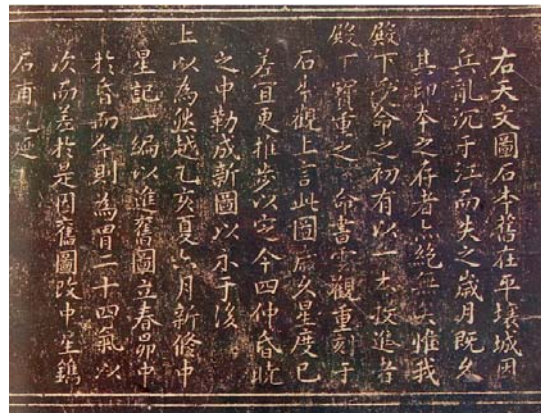 右天文圖石本舊在平壤城因
兵亂沉于江而失之歲月既久
其印本之存者亦絶無矣惟我
殿下受命之初有以一本投進者
殿下寶重之命書雲觀重刻于
石本觀上言此圖歲久星度已
差宜更推步以定今四仲昏曉
之中勒成新圖以示于後
上以為然越乙亥夏六月新修中
星記一編以進舊圖立春昴中
於昏而今則為胃二十四氣以
次而差於是因舊圖改中星鐫
石甫訖